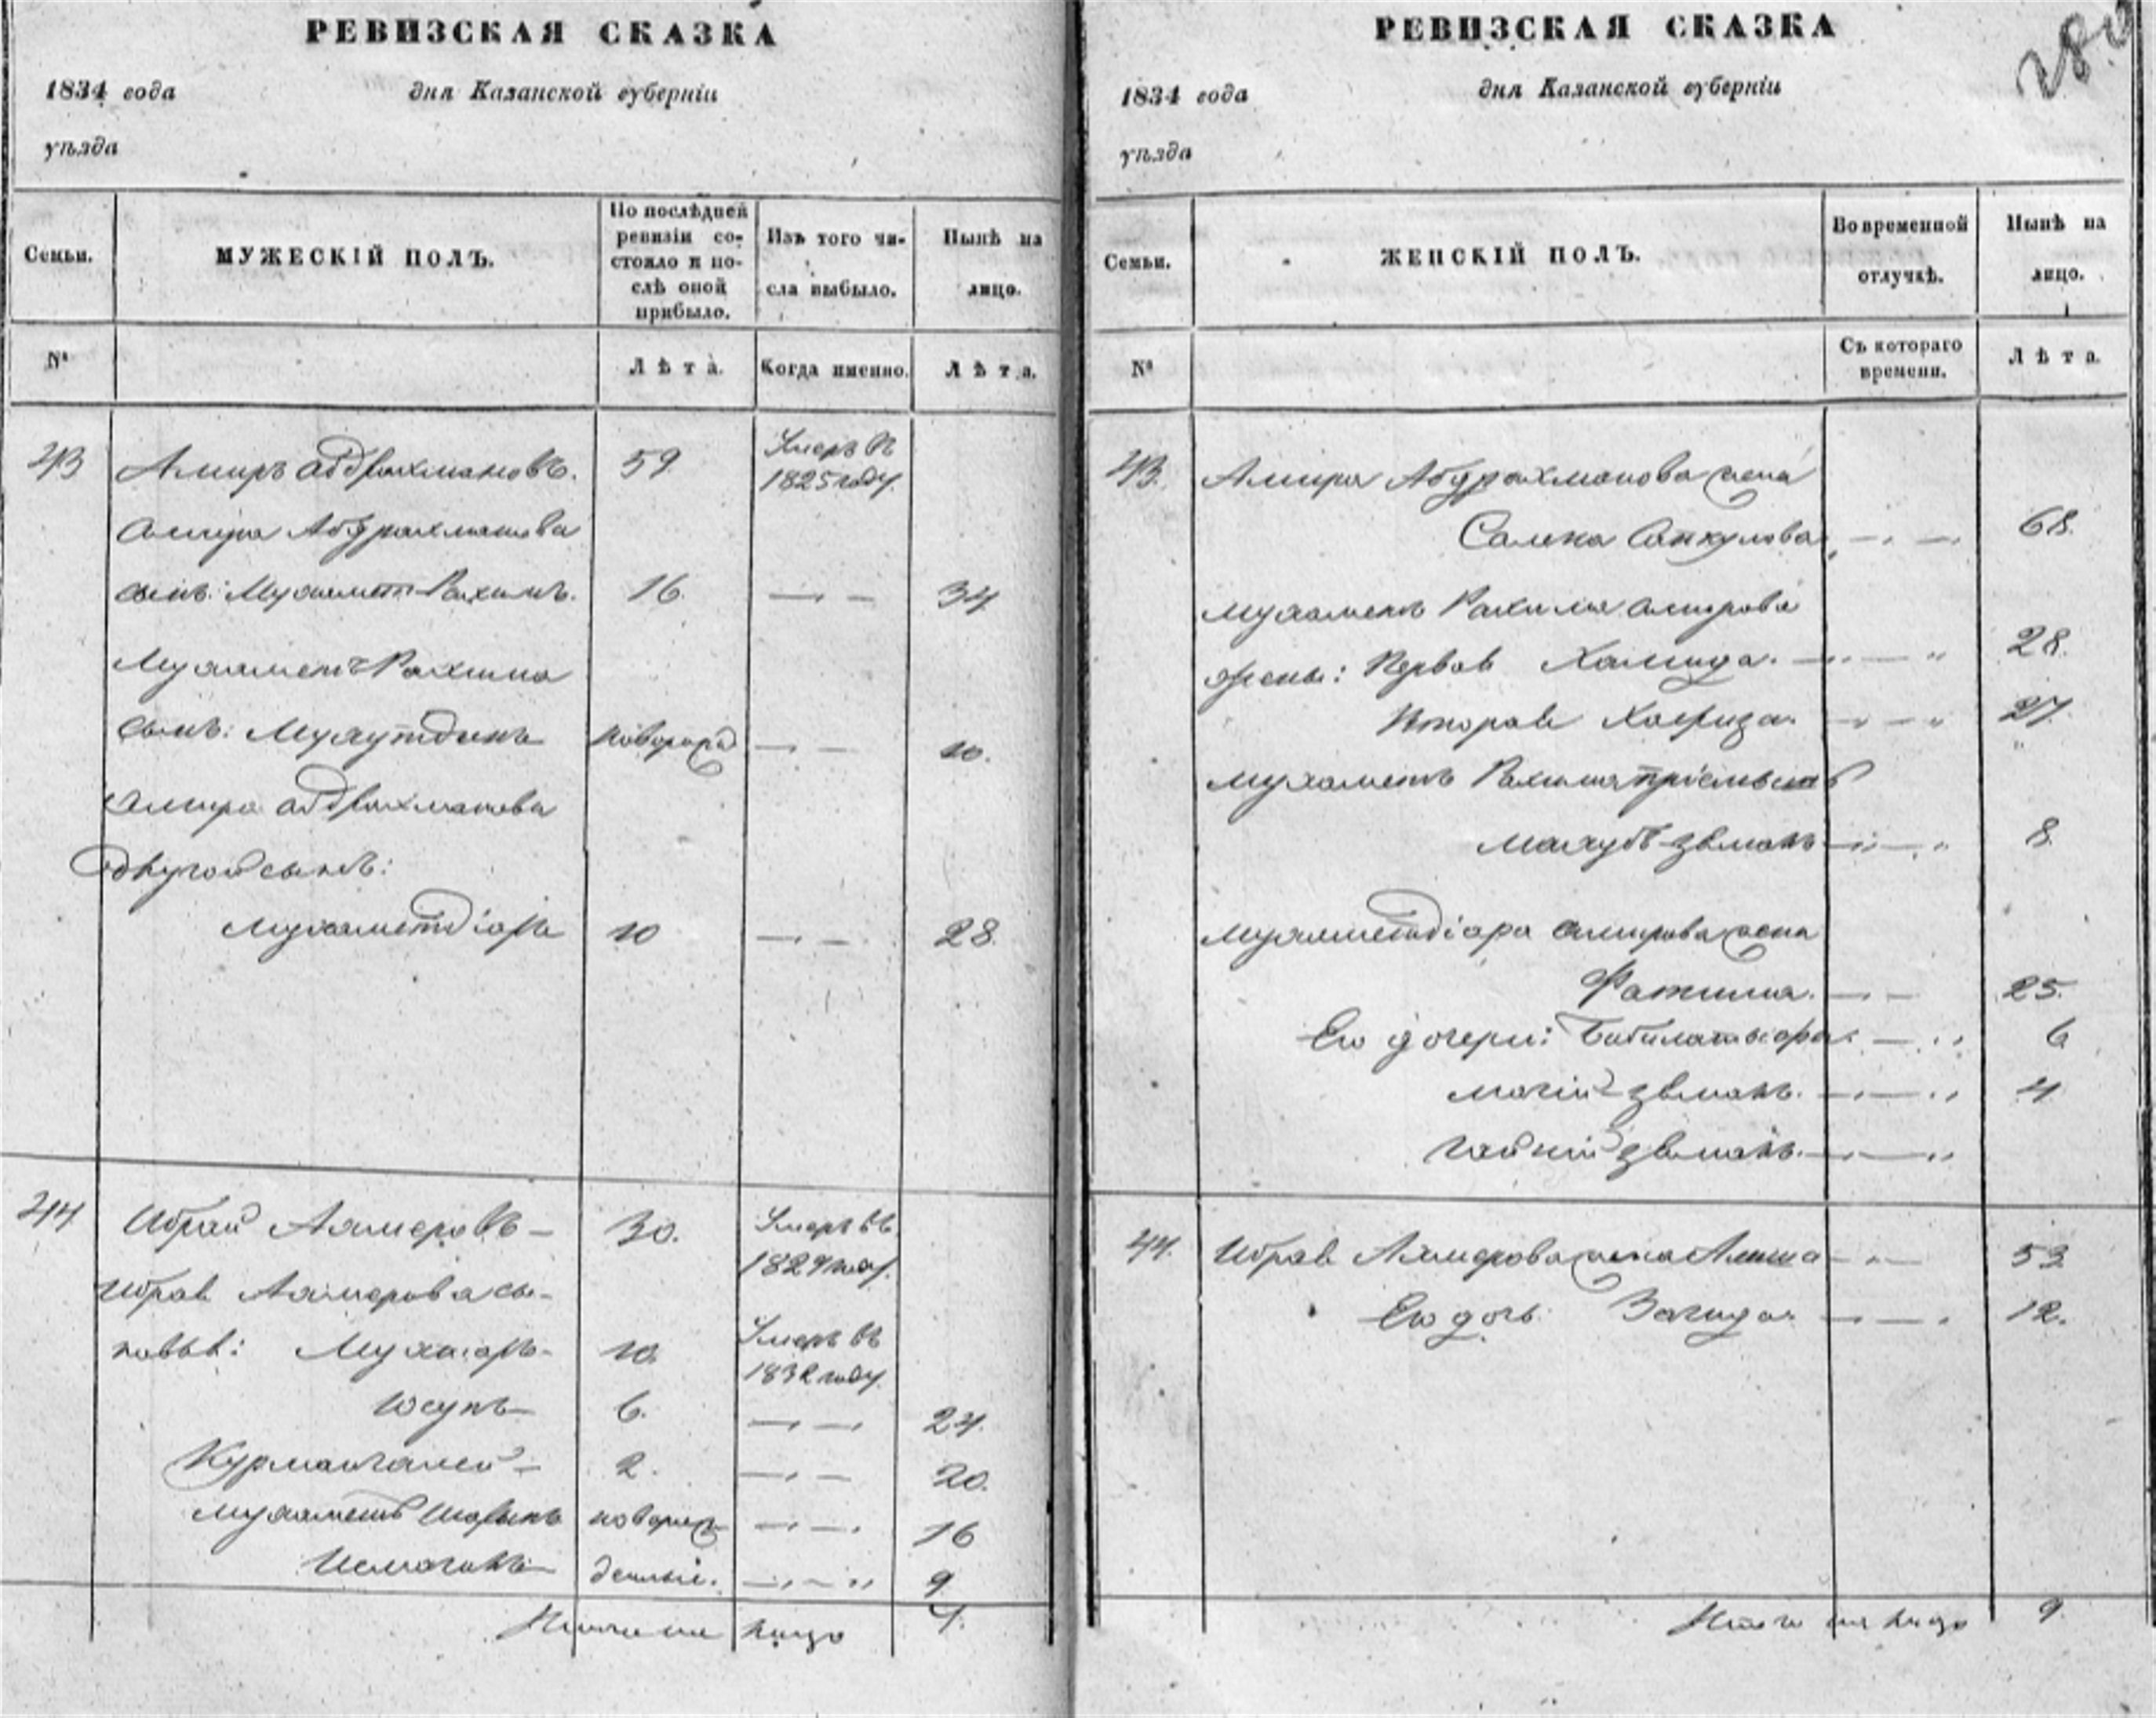 РЕВИЗСКАЯ СКАЗКА
1834 года дня Казанской губерніи
уѣзда
Семьи. МУЖЕСКІЙ ПОЛЪ. По послѣдней ревизіи состояло и послѣ оной прибыло. Изъ того числа выбыло. Нынѣ на лицо.
№ Лѣта. Когда именно. Лѣта.
43 Амиръ Абдрахмановъ. 59. Умеръ въ 1825 году.
Амира Абдрахманова
сынъ: Мухаметъ Рахимъ. 16. 34
Мухаметъ Рахима
сынъ: новорожд 10.
Амира Абдрахманова
другой сынъ:
Мухаметдіаръ 10 28.
44 Ибрай 30. Умеръ въ 1829 году.
Ибрая сы-
новья: 10. Умеръ въ 1832 году.
Юсупъ 6. 24.
Курмангалей 2. 20.
Мухаметъ Шарыпъ новорож 16
Исмагилъ денные. 9
Итого на лицо 4.
РЕВИЗСКАЯ СКАЗКА
280
1834 года дня Казанской губерніи
уѣзда
Семьи. ЖЕНСКІЙ ПОЛЪ. Во временной отлучкѣ. Нынѣ на лицо.
№ Съ котораго времени. Лѣта.
43. Амира Абдрахманова жена
68.
Мухаметъ Рахима Амирова
жены: Первая Хамида. 28.
Вторая Хафиза. 27.
Мухаметъ Рахима
8.
Мухаметдіара Амирова жена
Фатима. 25.
Ею дочери: 6
4
44. Ибрая жена 53
Ею дочь Загида. 12.
Итого на лицо 9